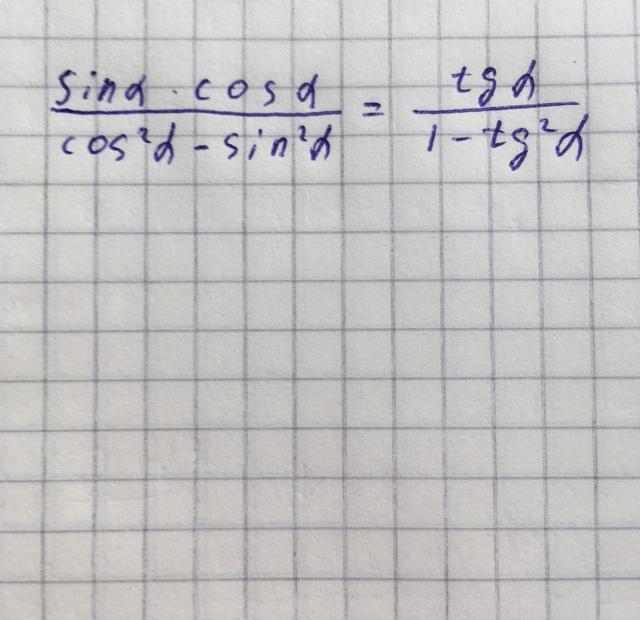 sinα · cosα / cos²α - sin²α = tgα / 1 - tg²α